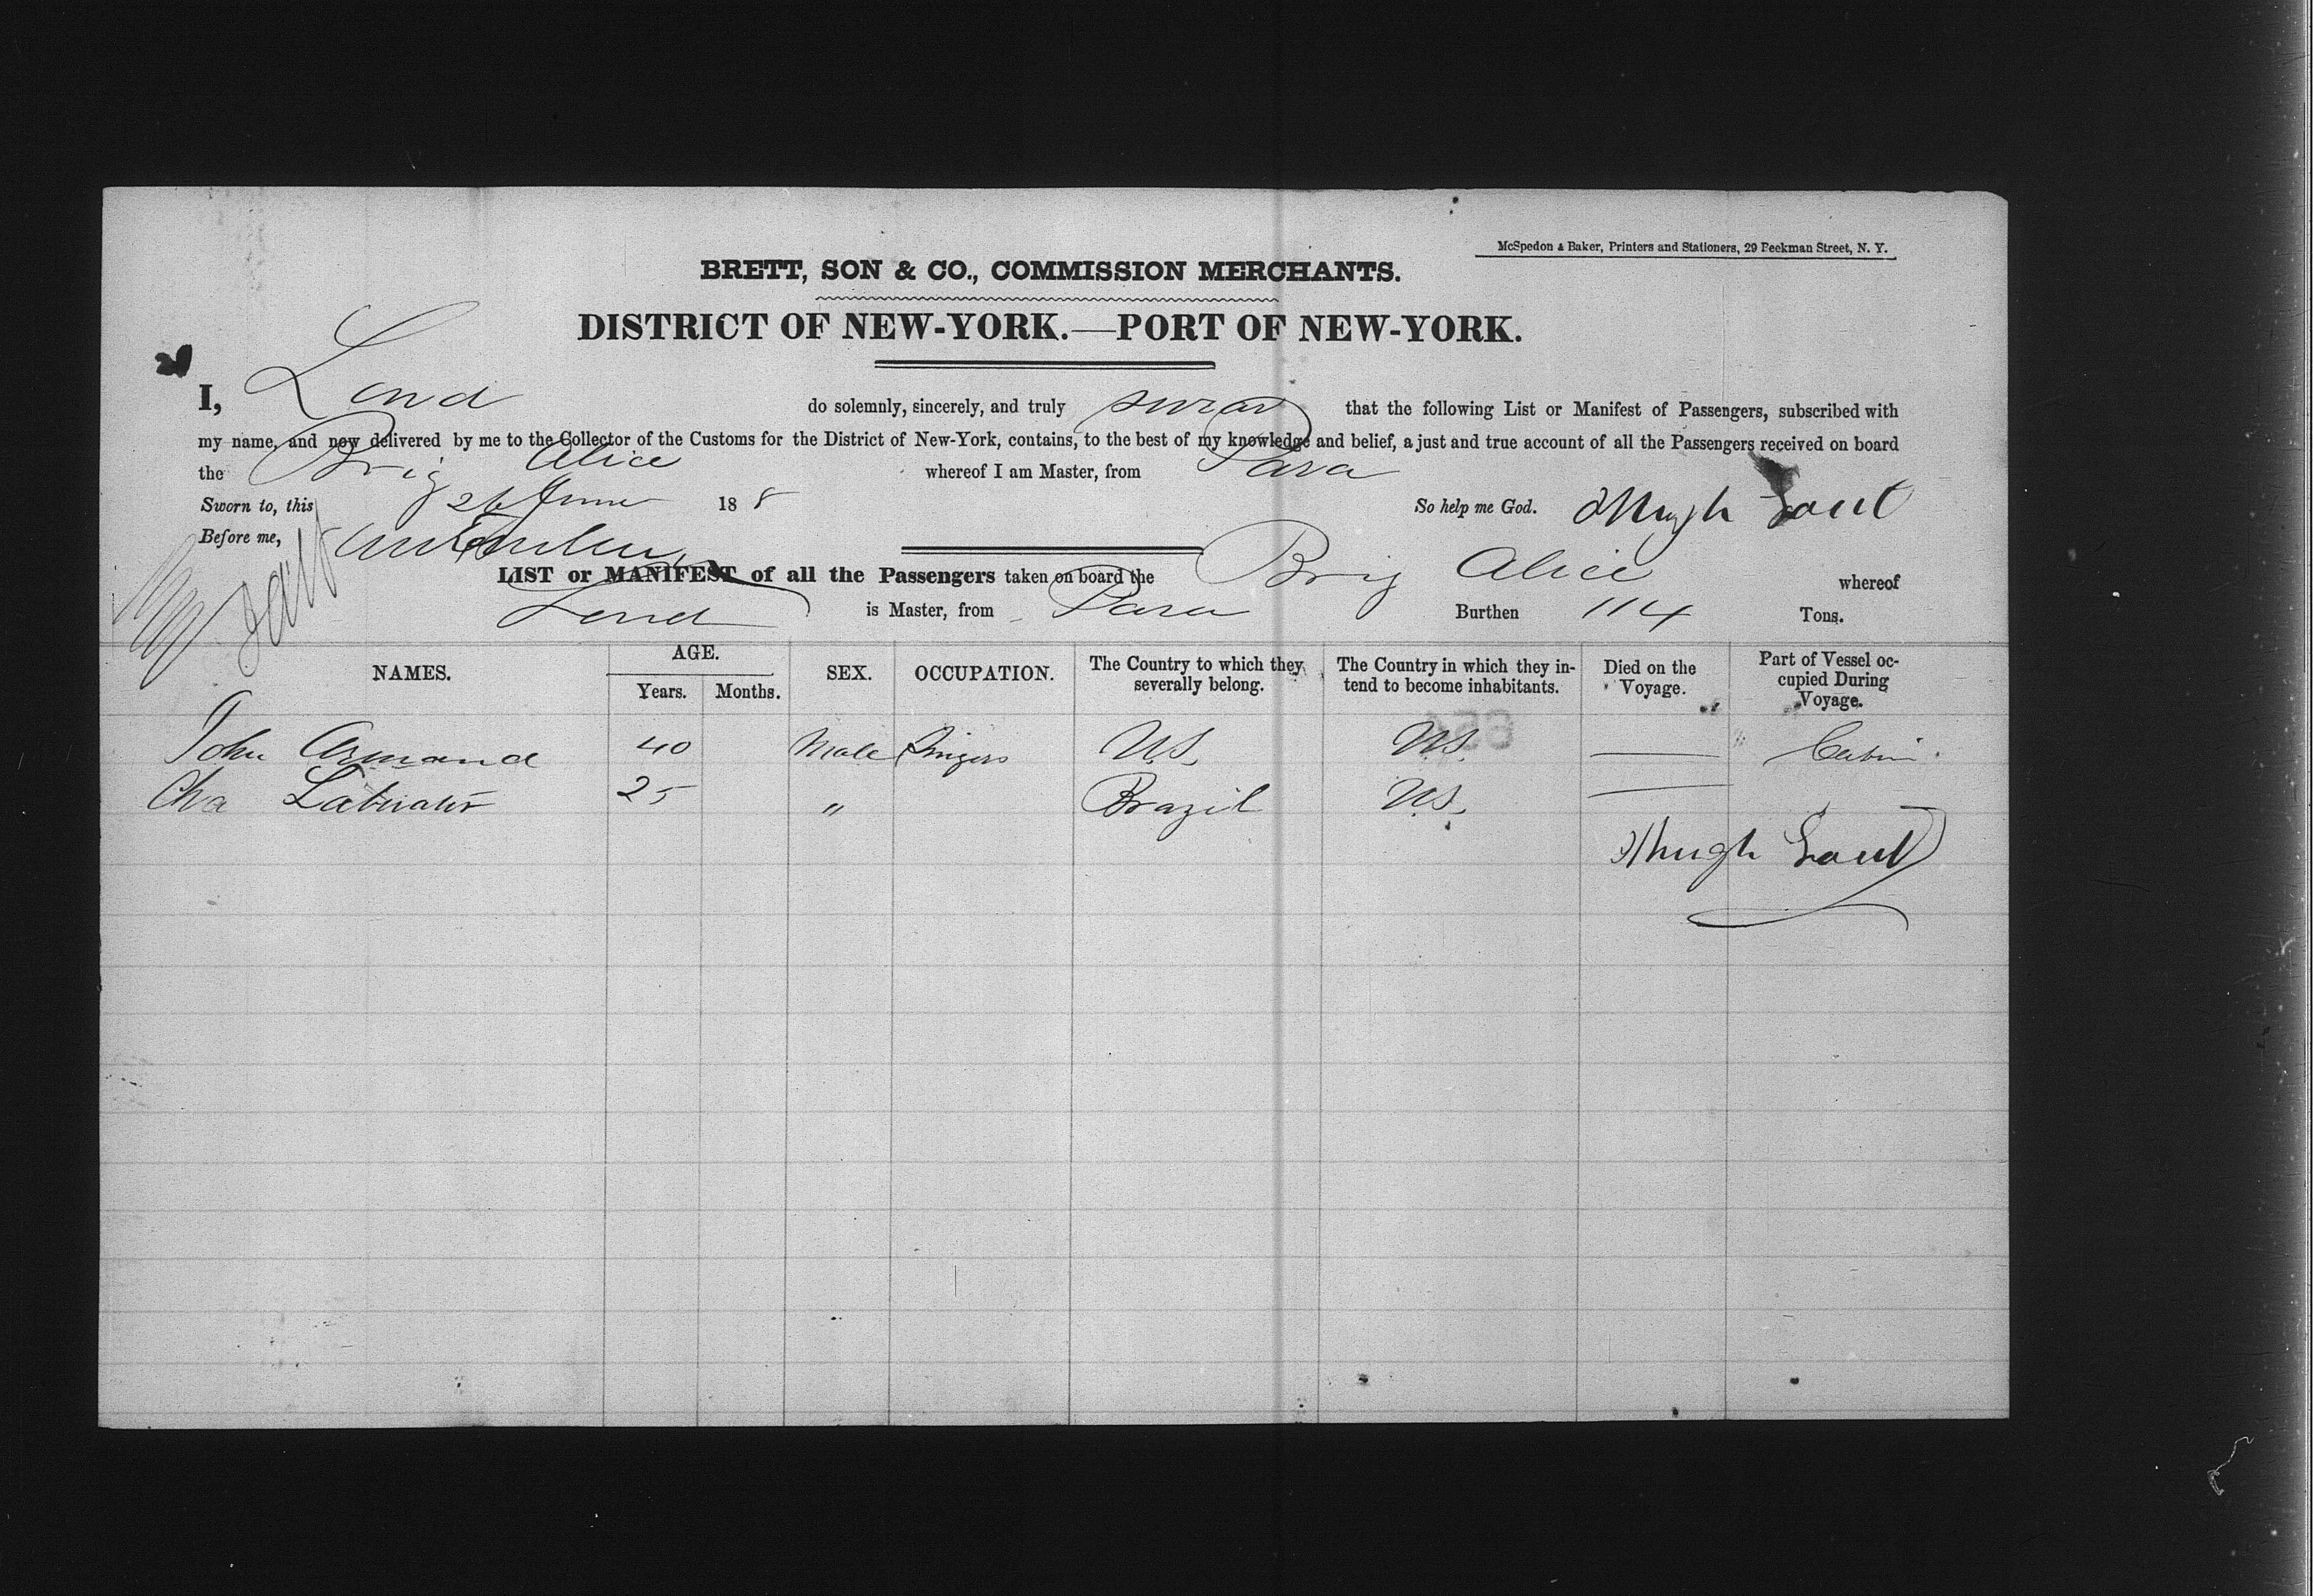 McSpedon & Baker, Printers and Stationers, 29 Beekman Street, N. Y.
BRETT, SON & CO., COMMISSION MERCHANTS.
DISTRICT OF NEW-YORK.—PORT OF NEW-YORK.
I, Lond do solemnly, sincerely, and truly swear that the following List or Manifest of Passengers, subscribed with
my name, and now delivered by me to the Collector of the Customs for the District of New-York, contains, to the best of my knowledge and belief, a just and true account of all the Passengers received on board
the Brig Alice whereof I am Master, from Para
Sworn to, this 26 June 18 8 So help me God. Hugh
Before me,
LIST or MANIFEST of all the Passengers taken on board the Brig Alice whereof
Lond is Master, from Para Burthen 114 Tons.
NAMES. AGE. Years. Months. SEX. OCCUPATION. The Country to which they severally belong. The Country in which they intend to become inhabitants. Died on the Voyage. Part of Vessel occupied During Voyage.
John Armand 40 Male Singers U.S. U.S. — Cabin
Cha 25 " Brazil U.S. —
Hugh